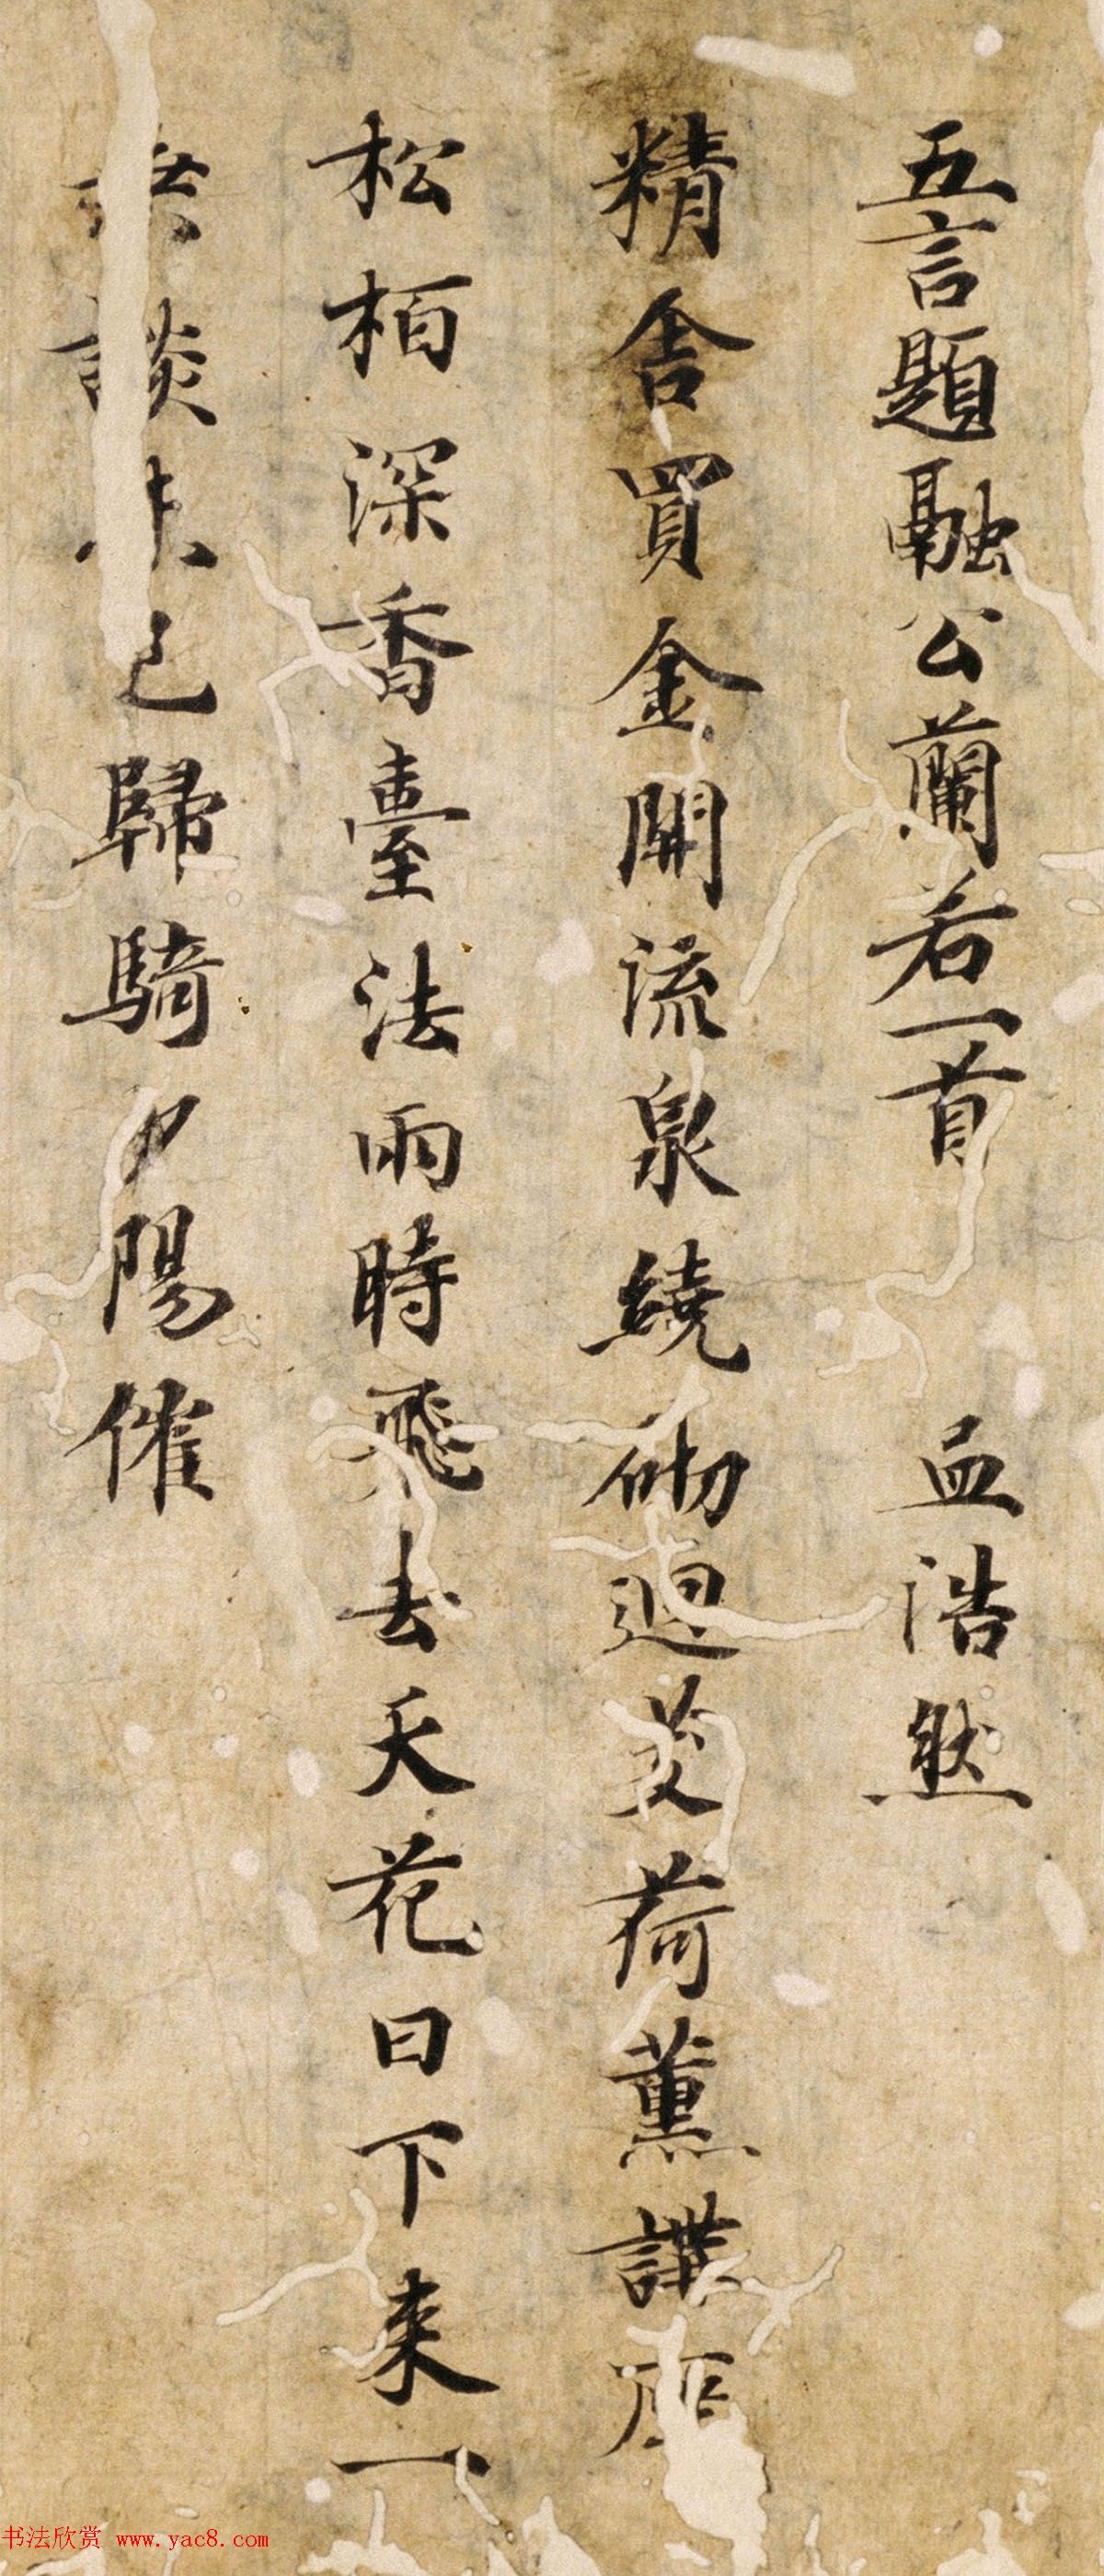 五言題融公蘭若一首 孟浩然
精舎買金開流泉繞砌迴芰荷薫講座
松柏深香臺法雨時飛去天花日下来一
談未已歸騎夕陽催
书法欣赏 www.yac8.com